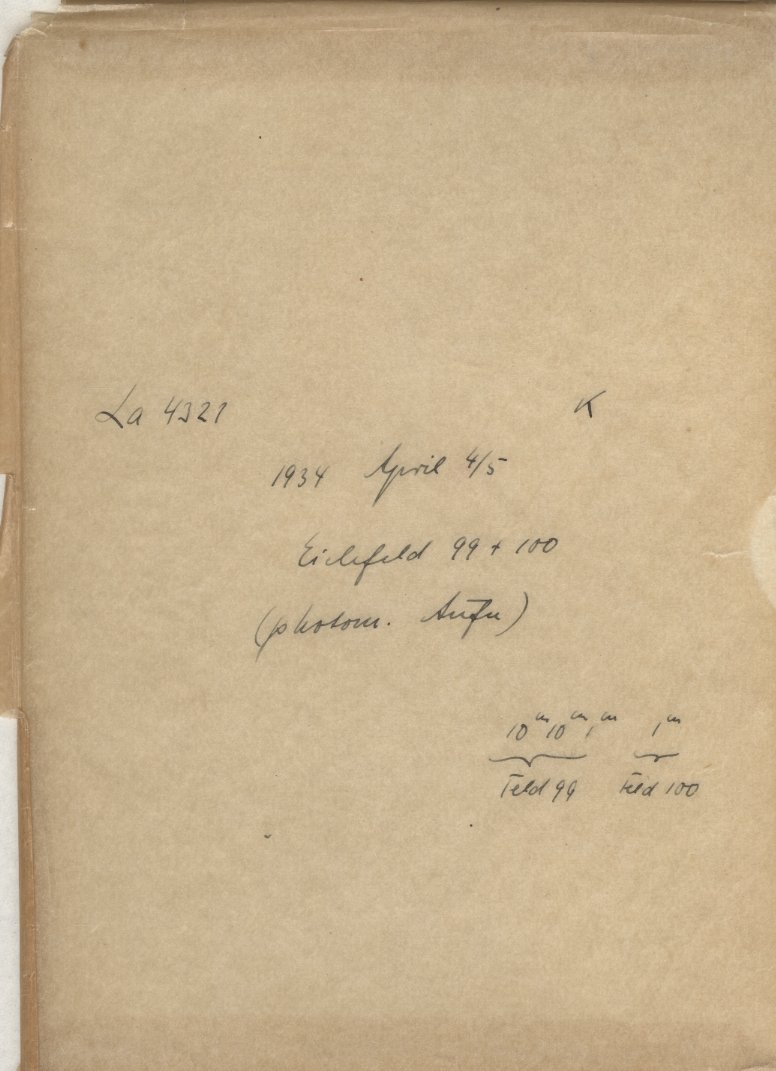 La 4321 K
1934 April 4/5
Eichfeld 99 + 100
(photom. Aufn)
10ᵐ 10ᵐ 1ᵐ 1ᵐ
Feld 99 Feld 100